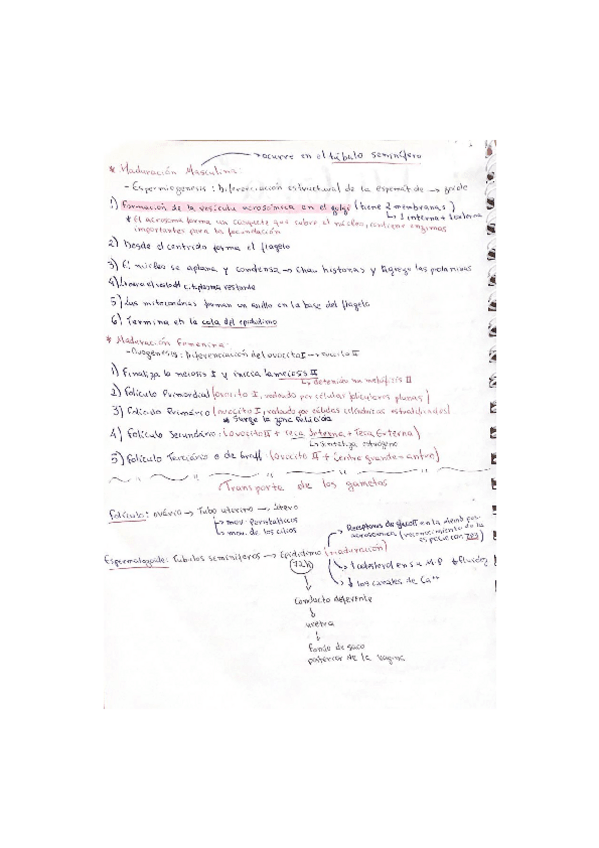 → ocurre en el túbulo seminífero
* Maduración Masculina:
- Espermiogenesis: Diferenciación estructural de la espermátide →
1) Formación de la vesícula acrosómica en el golgi (tiene 2 membranas)
↳ 1 interna + 1 externa
* El acrosoma forma un casquete que cubre el núcleo, contiene enzimas
importantes para la fecundación
2) Desde el centriolo forma el flagelo
3) El núcleo se aplana y condensa → chau histonas y Agrego las protaminas
4) citoplasma restante
5) Las mitocondrias forman un anillo en la base del flagelo
6) Termina en la cola del epidídimo
* Maduración Femenina:
- Ovogénesis: Diferenciación del ovocito I → ovocito II
1) Finaliza la meiosis I y inicia la meiosis II
↳ detención na metafisis II
2) Folículo Primordial (ovocito I, rodeado por células foliculares planas)
3) Folículo Primário (ovocito I, rodeado por células)
* Surge la zona Pelúcida
4) Folículo Secundário: (ovocito II + teca Interna + teca Externa)
↳ Sintetiza
5) Folículo Terciário o de Graff (ovocito II + centro grande = antro)
Transporte de los gametas
Folículo: ovário → Tubo uterino → útero
↳ mov. Peristalticos
↳ mov. de los cilios
Receptores de glucoT en la memb
(reconocimiento de la
especie con ZP3)
Espermatozoide: Túbulos seminíferos → Epidídimo (maduración)
(72h)
colesterol en su M.P fluidez
↓ los canales de Ca++
Conducto deferente
↓
uretra
↓
fondo de saco
posterior de la vagina